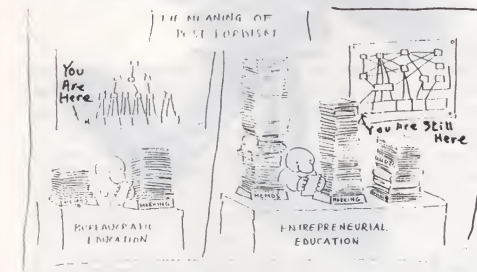 THE MEANING OF
POST FORDISM
You
Are
Here
MARKING
BUREAUCRATIC
EDUCATION
You Are Still
Here
MEMOS
MARKING
ENTREPRENEURIAL
EDUCATION